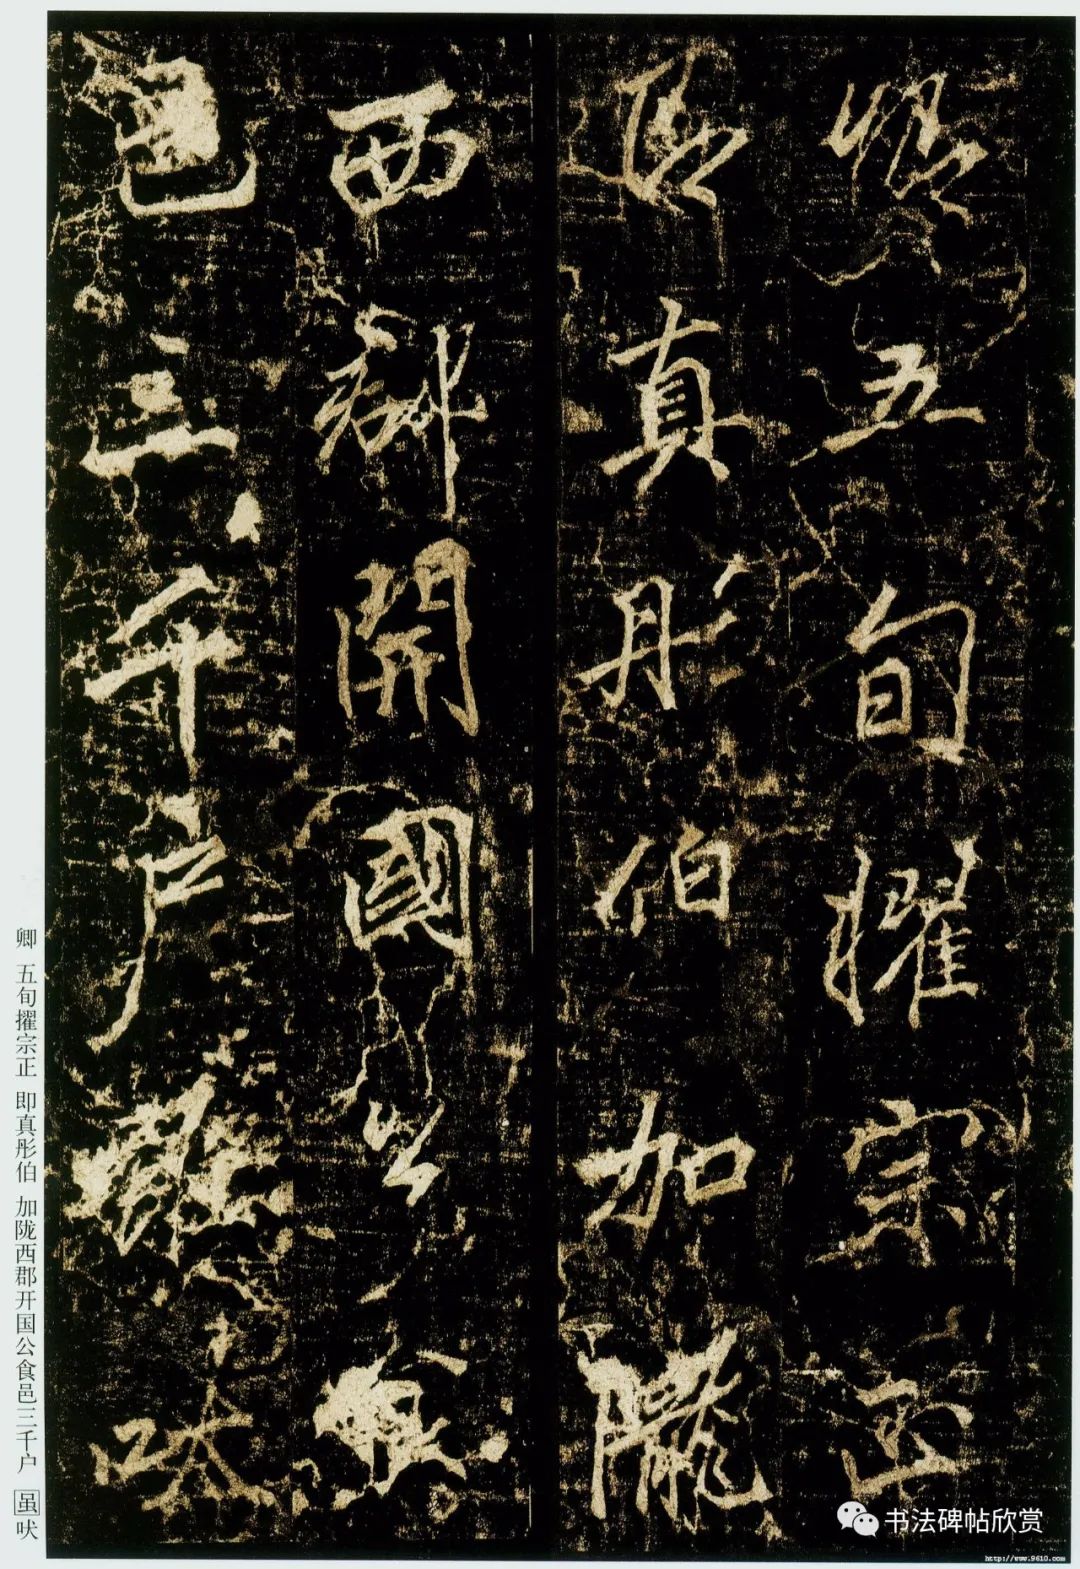 卿五旬擢宗正
即真彤伯加隴
西郡開國公食
邑三千户雖吠
卿 五旬擢宗正 即真彤伯 加陇西郡开国公食邑三千户 虽吠
书法碑帖欣赏
http://www.9610.com